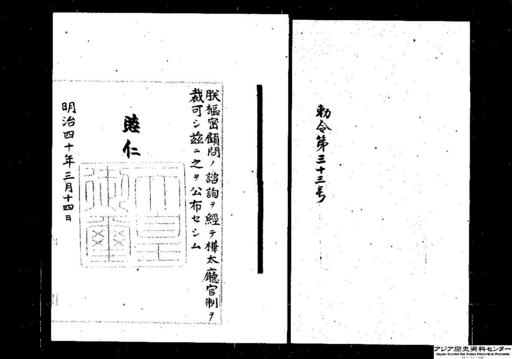 勅令第三十三号
朕枢密顧問ノ諮詢ヲ經テ樺太廳官制ヲ
裁可シ茲ニ之ヲ公布セシム
睦仁
天皇
御璽
明治四十年三月十四日
アジア歴史資料センター
Japan Center for Asian Historical Records